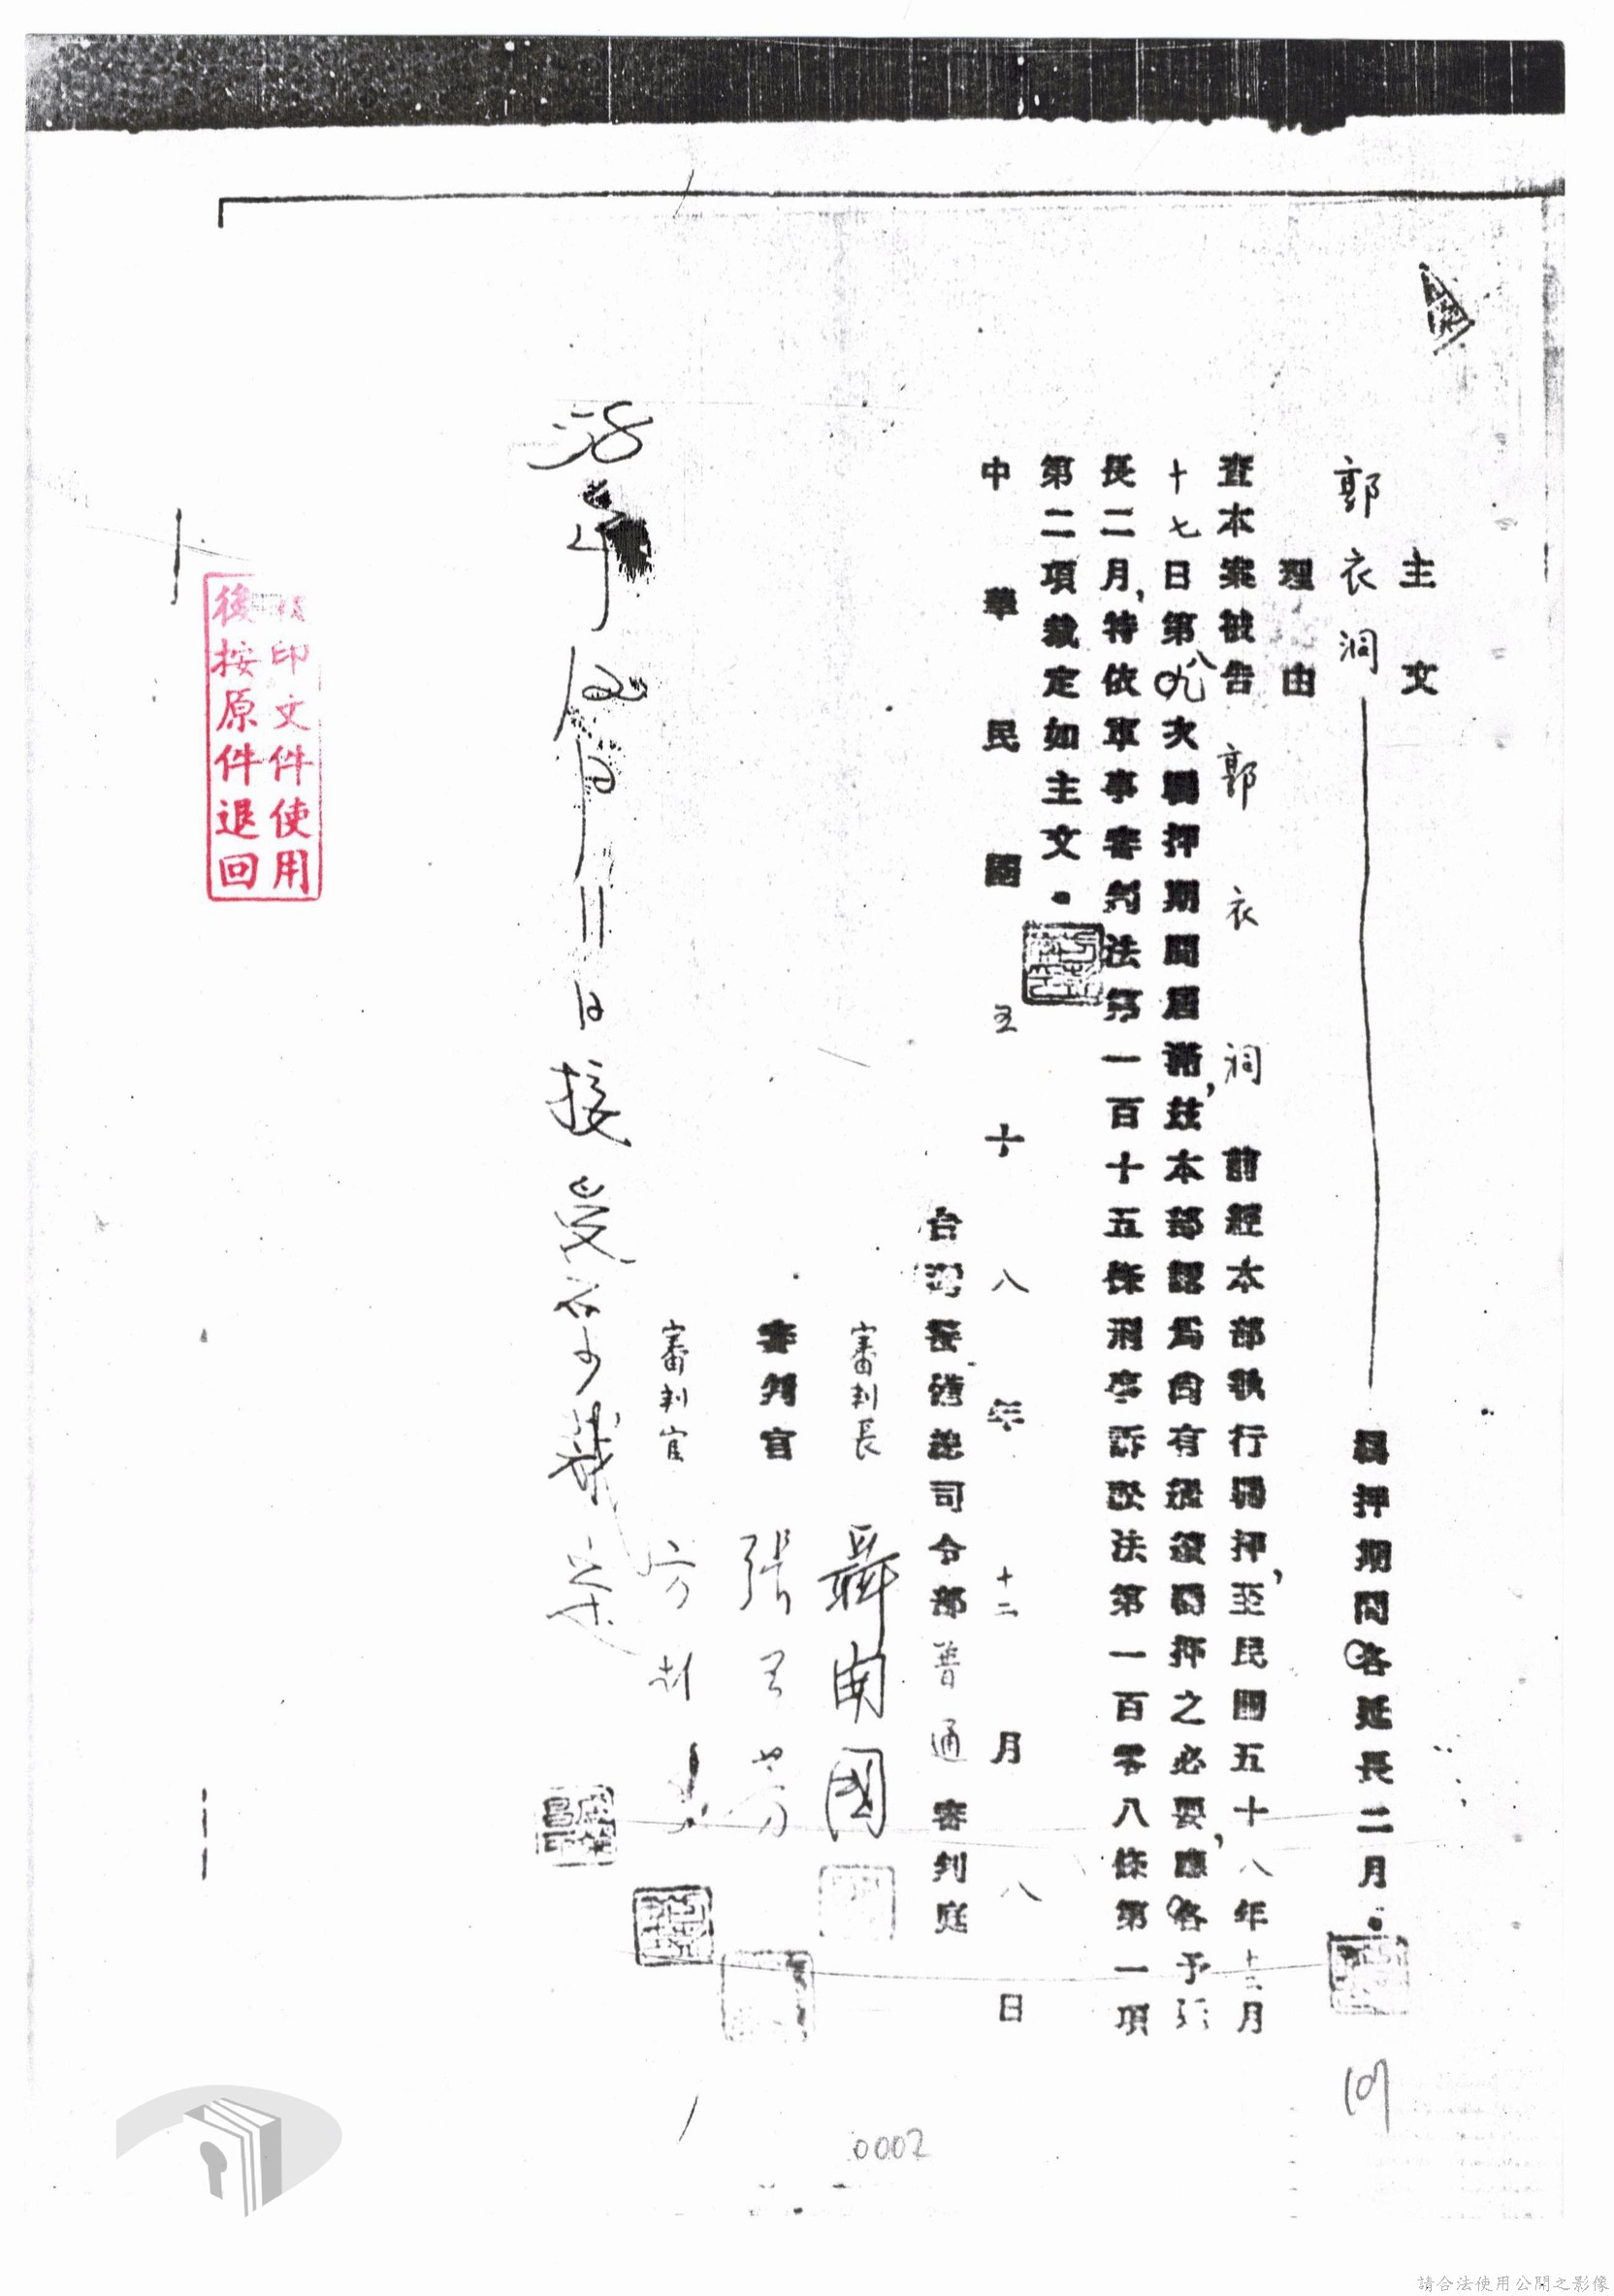 主文
郭衣洞 羈押期間各延長二月。
理由
查本案被告郭衣洞前經本部執行羈押,至民國五十八年十二月
十七日第八次羈押期間屆滿,玆本部認為尚有繼續羈押之必要,應各予延
長二月,特依軍事審判法第一百十五條刑事訴訟法第一百零八條第一項
第二項裁定如主文。
中華民國五十八年十二月八日
台灣警備總司令部普通審判庭
審判長 聶開國
審判官 張
審判官 方彬
年 月11日接受
複印文件使用
後按原件退回
0002
請合法使用公開之影像